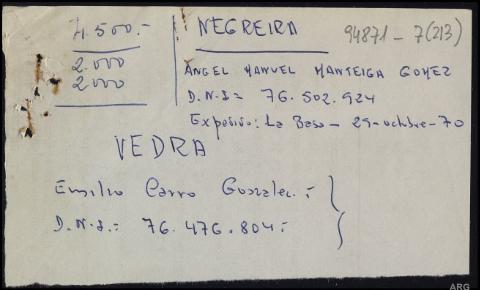 4.500.-
2.000
2000
NEGREIRA
94871-7(213)
ANGEL MANUEL MANTEIGA GOMEZ
D.N.I= 76.502.924
La Baso - 29-octubre-70
VEDRA
Emilio Carro Gonzalez.-
D.N.I.= 76.476.804.-
ARG